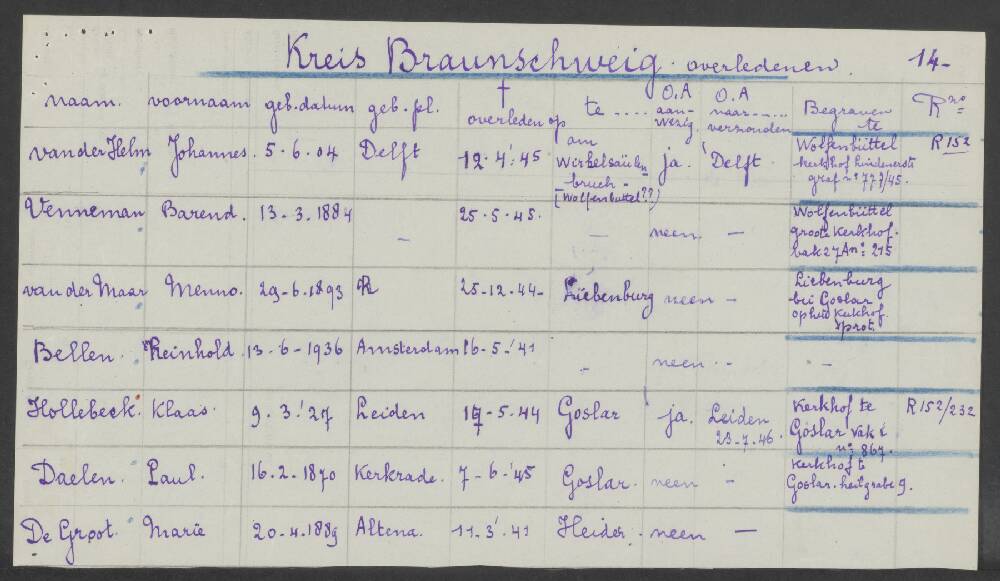 Kreis Braunschweig. overledenen. 14-
naam. voornaam geb. datum geb. pl. † overleden op te .... O.A aan- wezig. O.A naar ..... verzonden Begraven te R no=
van der Helm Johannes. 5.6.04 Delft 12.4.'45 am ja. Delft. Wolfenbüttel R 152
bruch - kerkhof Lindenerstr
(Wolfenbuttel??) graf no 777/45.
Venneman Barend. 13-3.1884 - 25.5.45. - neen - Wolfenbüttel
groote kerkhof.
vak 27 A no: 215
van der Maar Menno. 29-6.1893 25-12.44- Liebenburg neen - Liebenburg
bei Goslar
op het Kerkhof
prot.
Bellen. Reinhold. 13-6-1936 Amsterdam 16-5-'41 - neen - - -
Hollebeek. Klaas. 9.3.'27 Leiden 17-5.44 Goslar ja. Leiden Kerkhof te R 152/232
23-7.46. Goslar vak
no: 867.
Daelen. Paul. 16.2.1870 Kerkrade. 7-6-'45 Goslar. neen - Kerkhof te
Goslar. 9.
De Groot. Marie 20-4.1889 Altena. 11-3'.41 Heider. neen -